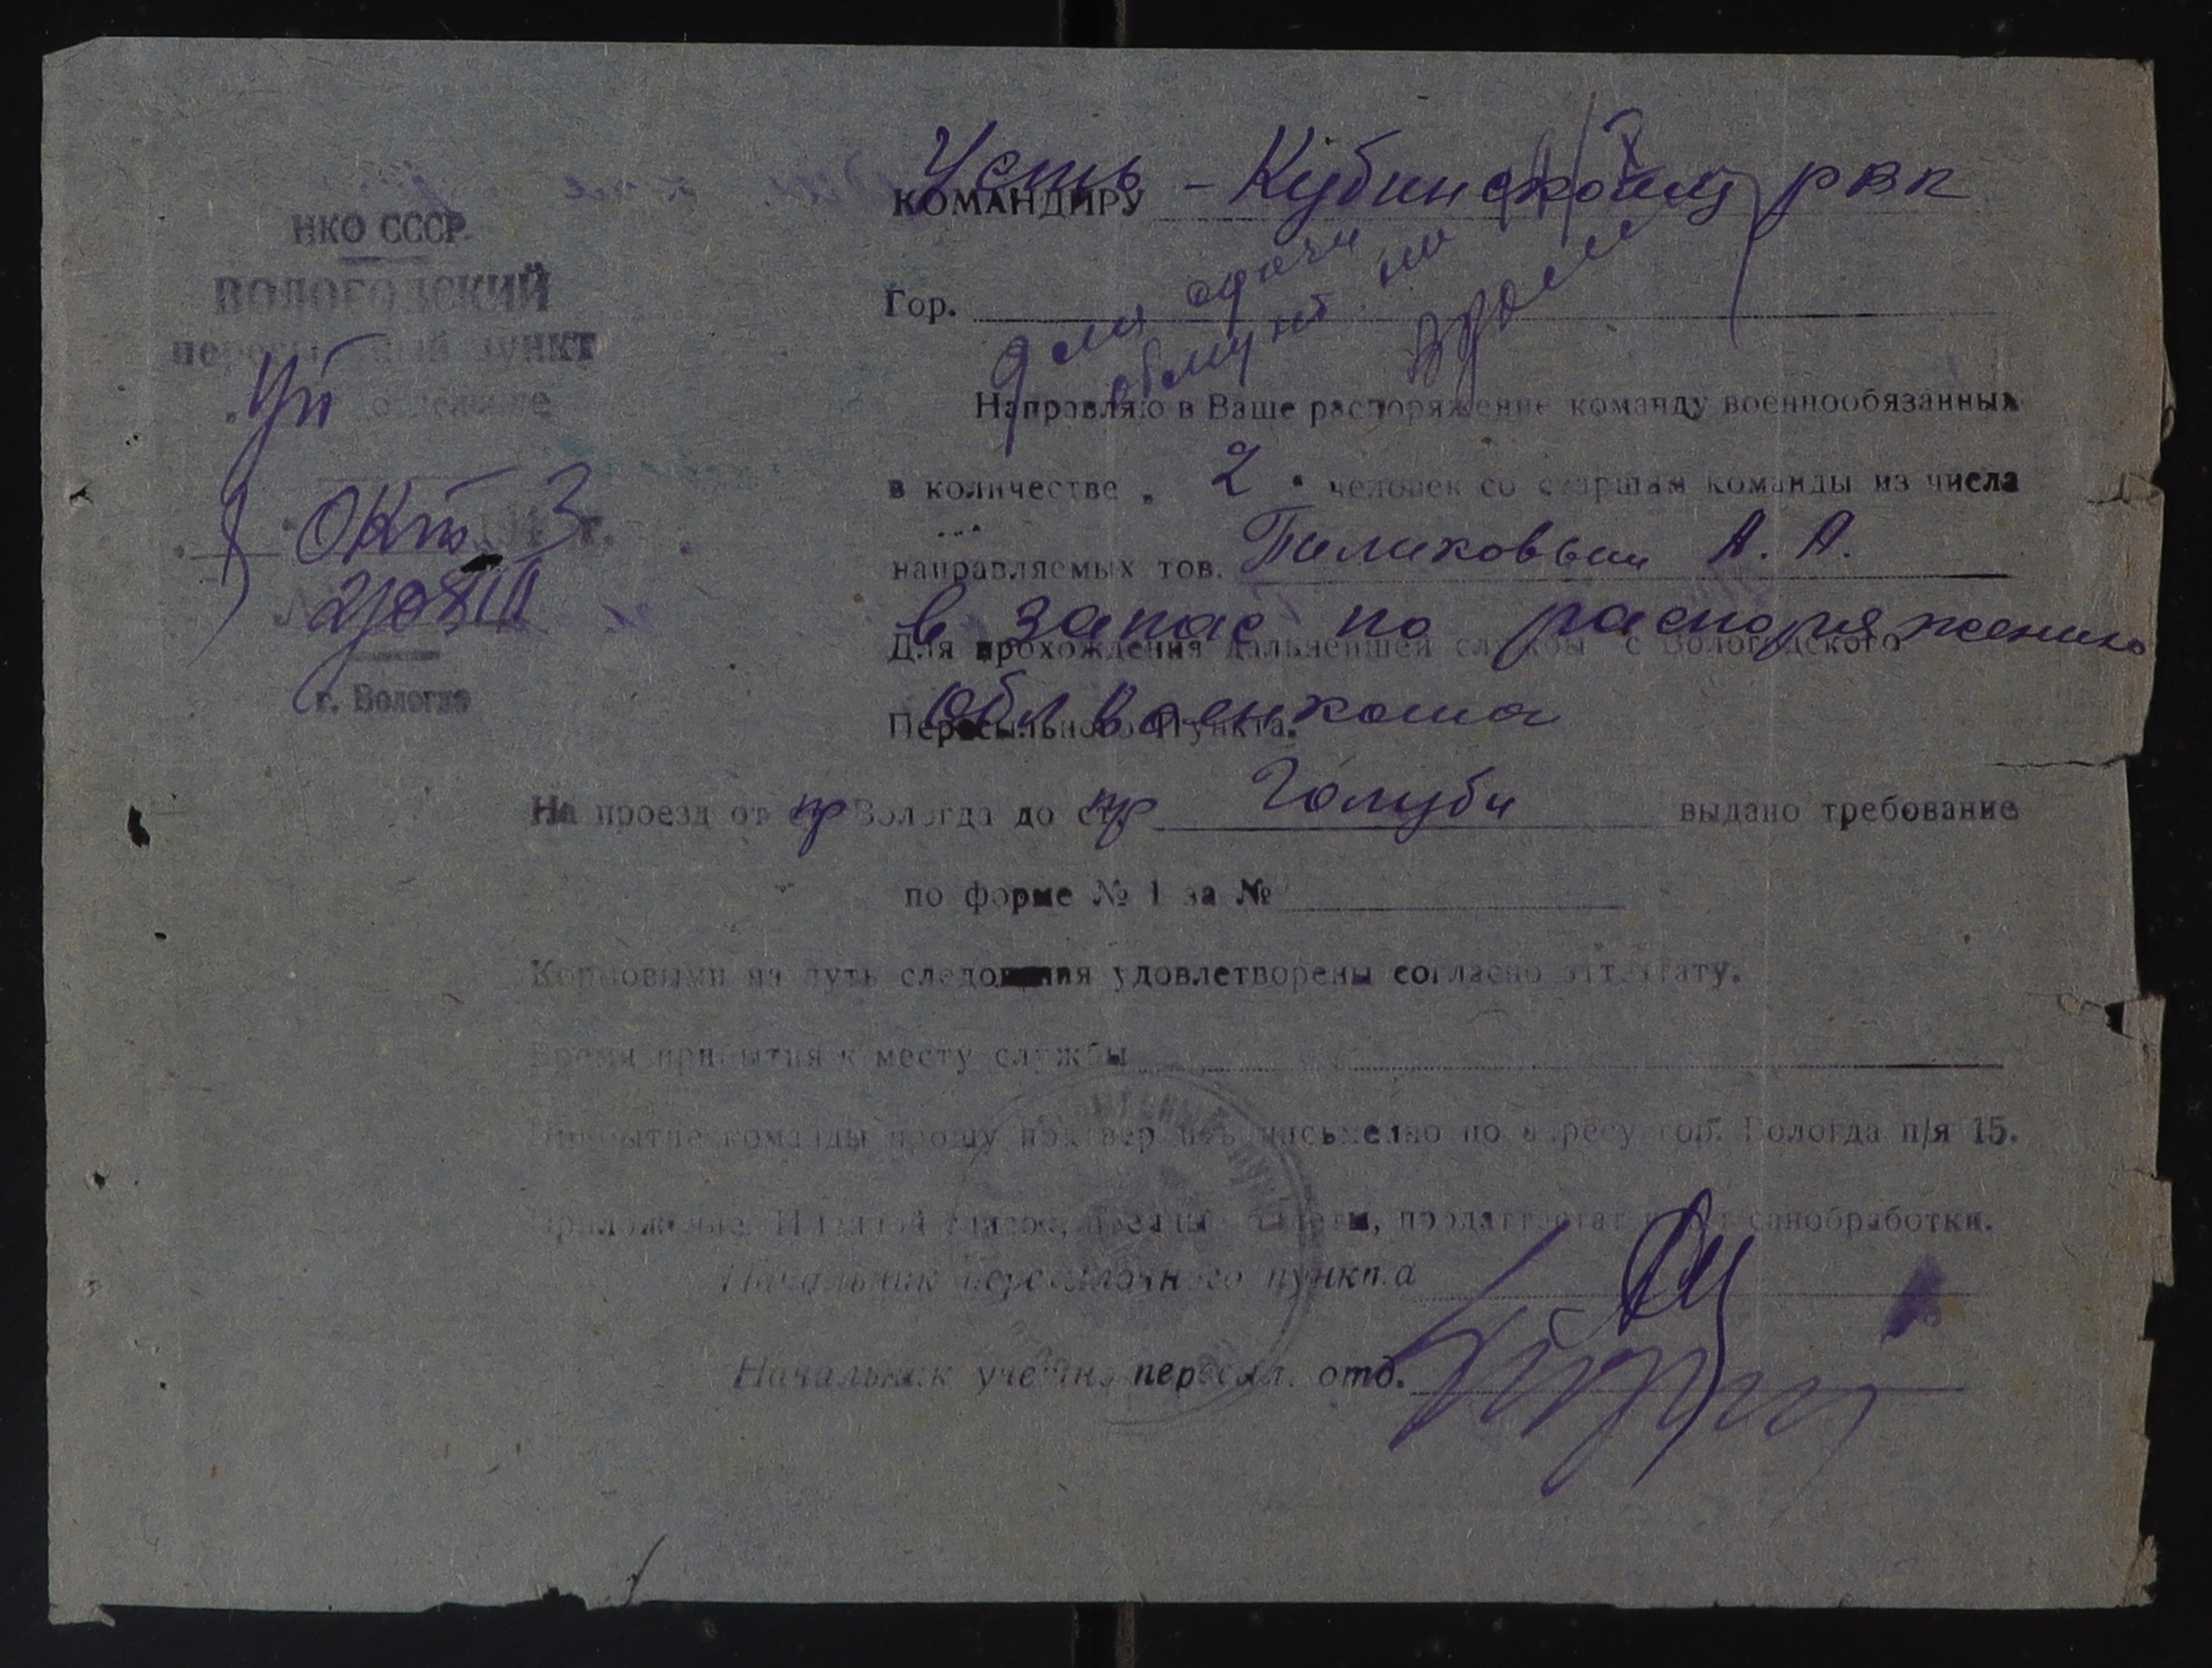 НКО СССР
ВОЛОГОДСКИЙ
пересыльный пункт
УП отделение
Окт. 3 г.
г. Вологда
Усть - Кубинскому РВК
КОМАНДИРУ
Гор.
для сдачи
обмунд
Направляю в Ваше распоряжение команду военнообязанных
в количестве „ 2 " человек со старшим команды из числа
направляемых тов. А. А.
в запас по распоряжению
Для прохождения дальнейшей службы с Вологодского
Облвоенкома
Пересыльного Пункта.
На проезд от пр Вологда до пр Голуби выдано требование
по форме № 1 за №
Кормовыми на путь следования удовлетворены согласно аттестату.
Время прибытия к месту службы
Прибытие команды прошу подтвердить письменно по адресу гор. Вологда п/я 15.
Приложение: Именной список, военные билеты, продаттестат и акт санобработки.
Начальник пересылочного пункта
Начальник учетно пересыл. отд.